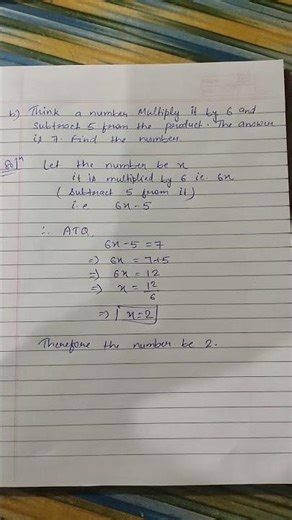 b) Think a number Multiply it by 6 and
subtract 5 from the product. The answer
is 7. Find the number.
Solⁿ Let the number be x
it is multiplied by 6 i.e. 6x
( subtract 5 from it)
i.e 6x - 5
∴ ATQ,
6x - 5 = 7
=) 6x = 7+5
=) 6x = 12
=) x = 12/6
=) x = 2
Therefore the number be 2.